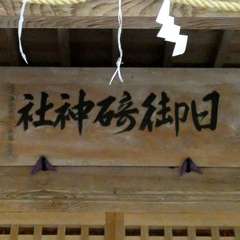 日御碕神社